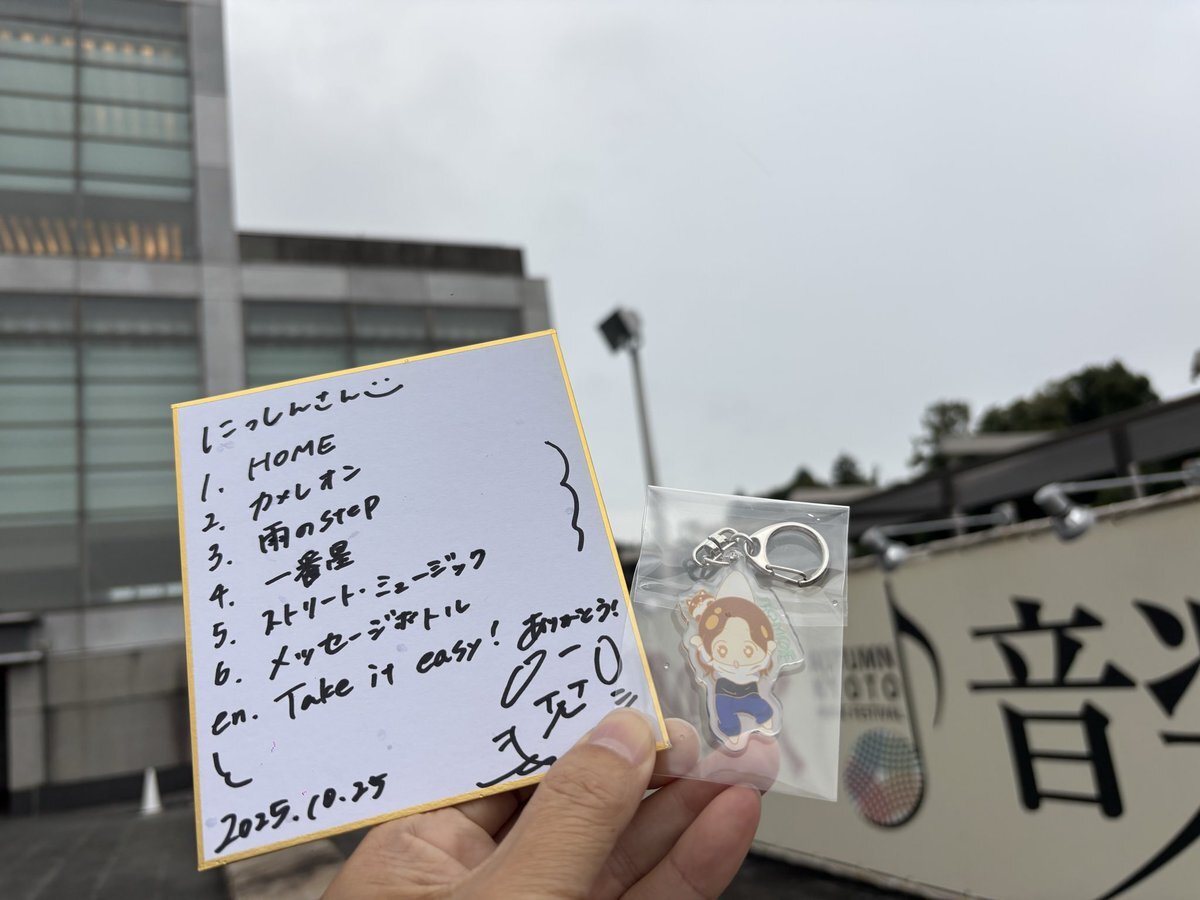 にっしんさん
1. HOME
2. カメレオン
3. 雨のstep
4. 一番星
5. ストリート・ミュージック
6. メッセージボトル
en. Take it easy! ありがとう!
2025.10.25
AUTUMN
KYOTO
FESTIVAL
音